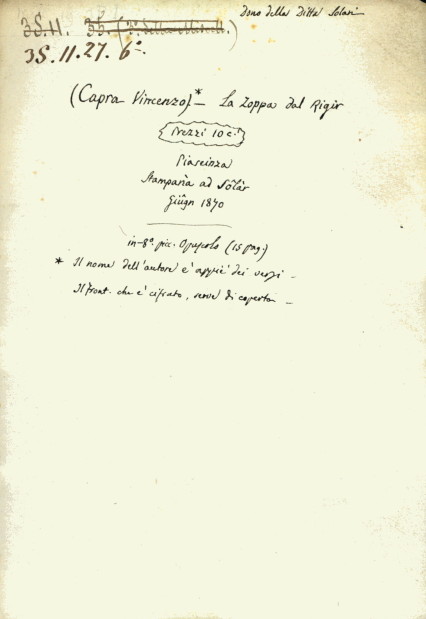 Dono della Ditta Solari
3S.11.
3S.11.27. 6º.
(Capra Vincenzo)* — La Zoppa dal Rigir
Prezzi 10 c.
Piaseinza
Stamparia ad Sôlàr
Giûgn 1870
in-8º. picc. Opuscolo (15 pag.)
* Il nome dell'autore è appiè dei versi —
Il front. che è cifrato, serve di coperta —